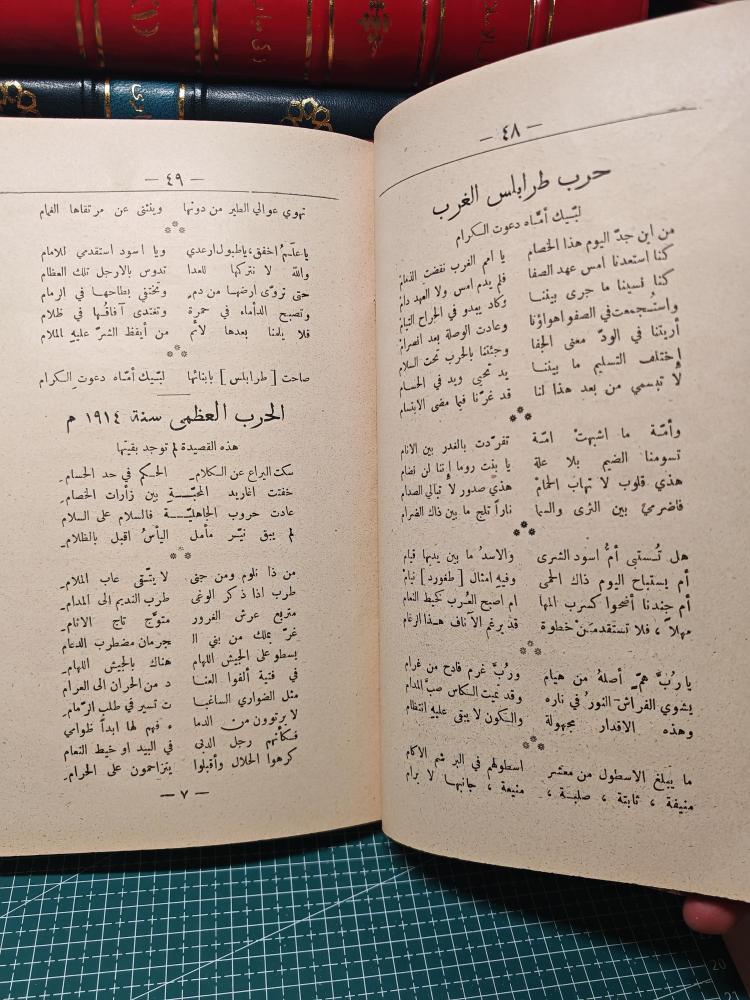 — ٤٨ —
حرب طرابلس الغرب
لبّيك أمّاه دعوت الكرام
من اين جدّ اليوم هذا الخصام يا امم الغرب نقضت الذمام
كنا استعدنا امس عهد الصفا فلم يدم امس ولا العهد دام
كنا نسينا ما جرى بيننا وكاد يبدو في الجراح التيام
واستُجمعت في الصفو اهواؤنا وعادت الوصلة بعد انصرام
أريتنا في الودّ معنى الجفا وجئتنا بالحرب تحت السلام
إختلف التسليم ما بيننا يد تحيي ويد في الحسام
لا تبسمي من بعد هذا لنا قد غرّنا فيما مضى الابتسام
وأمّة ما اشبهتْ امّة تفرّدت بالغدر بين الانام
تسومنا الضيم بلا علة يا بنت روما إننا لن نضام
هذي قلوب لا تهاب الحمامْ هذي صدور لا تبالي الصدام
فاضرمي بين الثرى والسما ناراً تلج ما بين ذاك الضرام
هل تُستبى أمُّ اسود الشرى والاسدُ ما بين يديها قيام
أم يستباح اليوم ذاك الحمى وفيه امثال [طغورد] نيام
أم جندنا أضحوا كسرب المها ام اصبح العُرب كخيط النعام
مهلاً، فلا تستقدمنْ خطوة قد يرغم الآناف هذا الرغام
يا رُبَّ همّ أصلهُ من هيام ورُبَّ غرم فادح من غرام
يشوي الفراشَ النورُ في ناره وقد تميت الكاس صبَّ المدام
وهذه الاقدار مجهولة والكون لا يبقى عليه انتظام
ما يبلغ الاسطول من معشر اسطولهم في البر شم الاكام
منيفة، ثابتة، صلبة، منيعة، جانبها لا يرام
— ٤٩ —
تهوي عوالي الطير من دونها وينثني عن مرتقاها الغمام
يا عَلَمُ اخفق، يا طبول ارعدي ويا اسود استقدمي للامام
والله لا نتركها للعدا تدوس بالارجل تلك العظام
حتى تروّى ارضها من دم وتختفي بطاحها في الرمام
وتصبح الدأماء في حمرة وتغتدى آفاقها في ظلام
فلا يلمنا بعدها لائم من أيقظ الشرّ عليه الملام
صاحت [طرابلس] بابنائها لبّيك أمّاه دعوت الكرام
الحرب العظمى سنة ١٩١٤ م
هذه القصيدة لم توجد بقيتها
سكت اليراع عن الكلام الحكم في حد الحسام
خفتت اغاريد المحبّـة بين زأرات الخصام
عادت حروب الجاهليّـة فالسلام على السلام
لم يبق نيّر مأمل اليأسُ اقبل بالظلام
من ذا نلوم ومن جنى لا يتّقى عاب الملام
طرب اذا ذكر الوغى طرب النديم الى المدام
متربع عرش الغرور متوّج تاج الاثام
غرّ بملك من بني ال جرمان مضطرب الدعام
يسطو على الجيش اللهام هناك بالجيش اللهام
في فتية ألفوا العنا د من الحران الى العرام
مثل الضواري الساغبا ت تسير في طلب الرّمام
لا يرتوون من الدما ء فهم لها ابداً ظوامي
فكأنهم رجل الدبى في البيد او خيط النعام
كرهوا الحلال وأقبلوا يتزاحمون على الحرام
— ٧ —